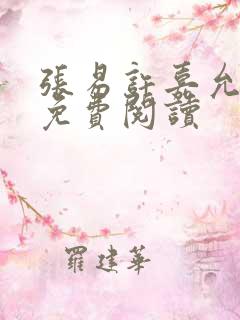 張易許嘉允
免費閱讀
羅建華